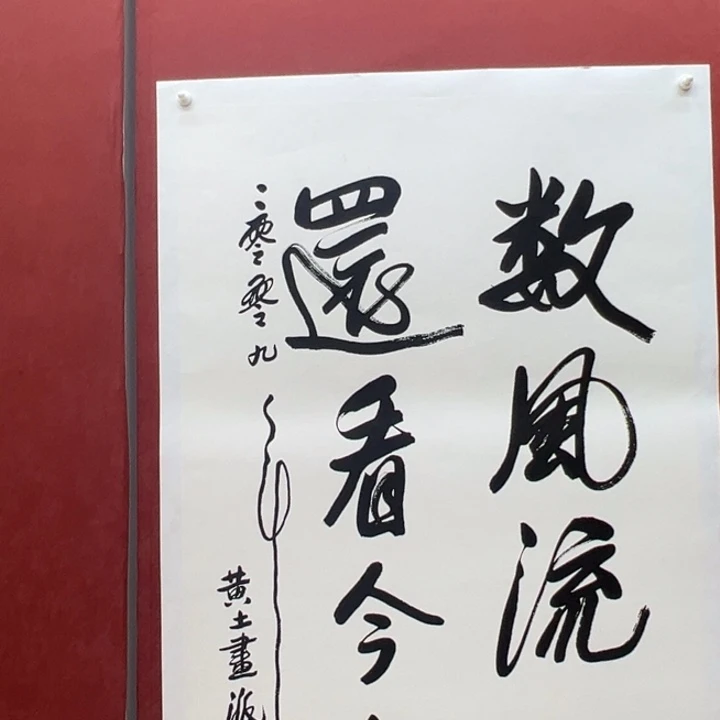 数風流
還看今
二零零九年
黄土畫派